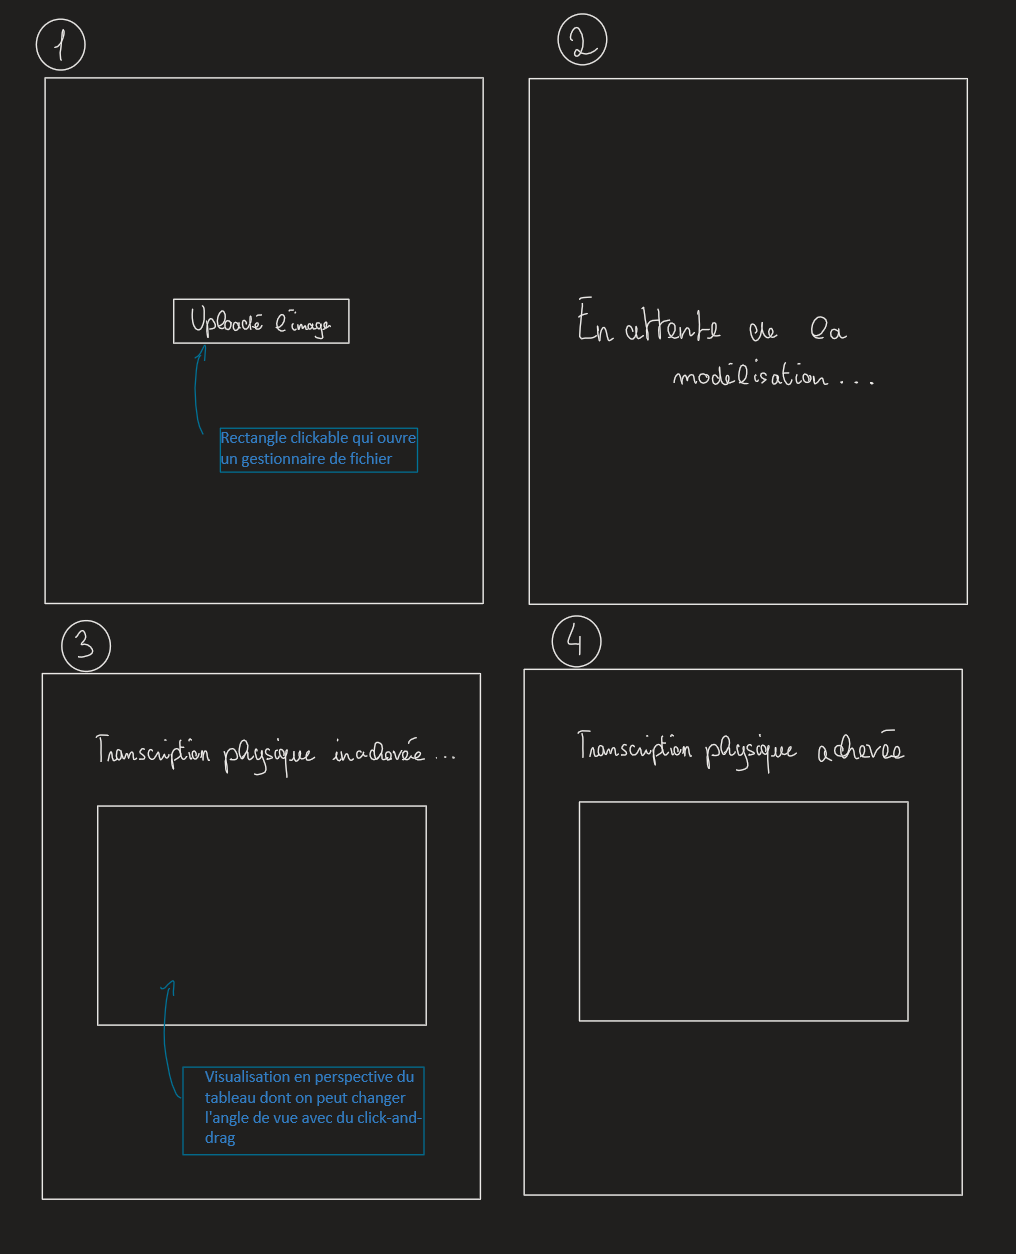 1
2
Uploadé l'image
Rectangle clickable qui ouvre
un gestionnaire de fichier
En attente de la
modélisation...
3
4
Transcription physique inachevée...
Visualisation en perspective du
tableau dont on peut changer
l'angle de vue avec du click-and-
drag
Transcription physique achevée